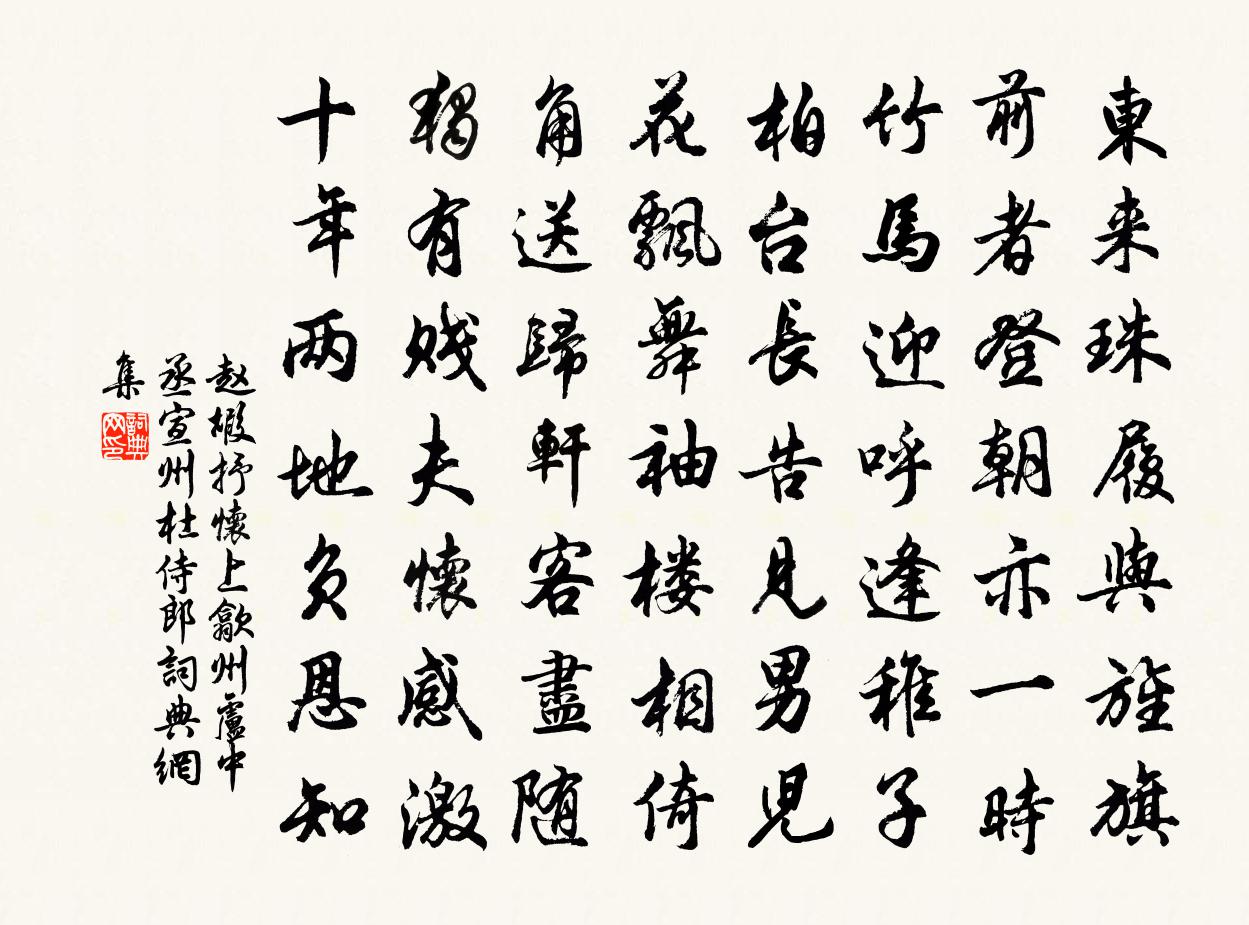 東来珠履與旌旗
前者登朝亦一時
竹馬迎呼逢稚子
柏台長告見男児
花飄舞袖楼相倚
角送歸軒客盡随
獨有賤夫懐感激
十年两地负恩知
赵嘏抒懐上歙州盧中
丞宣州杜侍郎詞典網
集
詞典网印